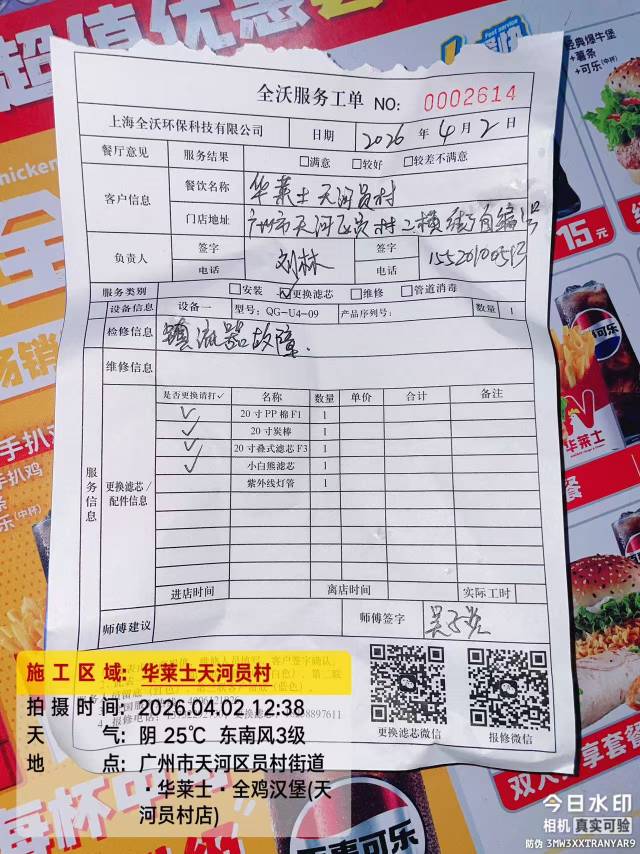 超值优惠
全沃服务工单 NO: 0002614
上海全沃环保科技有限公司 日期 2026 年 4 月 2 日
餐厅意见 服务结果 □满意 □较好 □较差不满意
客户信息 餐饮名称 华莱士天河员村
门店地址 广州市天河区员村二横街自编号
负责人 签字 刘林 签字
电话 电话 15520100513
服务类别 □安装 ☑更换滤芯 □维修 □管道消毒
设备信息 设备一 型号: QG-U4-09 产品序列号: 数量 1
检修信息 镇流器故障.
维修信息
服务信息 更换滤芯/配件信息 是否更换请打✓ 名称 数量 单价 合计 备注
✓ 20寸PP棉F1 1
✓ 20寸炭棒 1
✓ 20寸叠式滤芯F3 1
✓ 小白熊滤芯 1
紫外线灯管 1
进店时间 离店时间 实际工时
师傅建议 师傅签字
更换滤芯微信 报修微信
施工区域: 华莱士天河员村
拍摄时间: 2026.04.02 12:38
天气: 阴 25℃ 东南风3级
地点: 广州市天河区员村街道
·华莱士·全鸡汉堡(天
河员村店)
经典爆牛堡
+薯条
+可乐(中杯)
15元
华莱士
可乐
百事可乐
今日水印
相机 真实可验
防伪 3MW3XXTRANYAR9